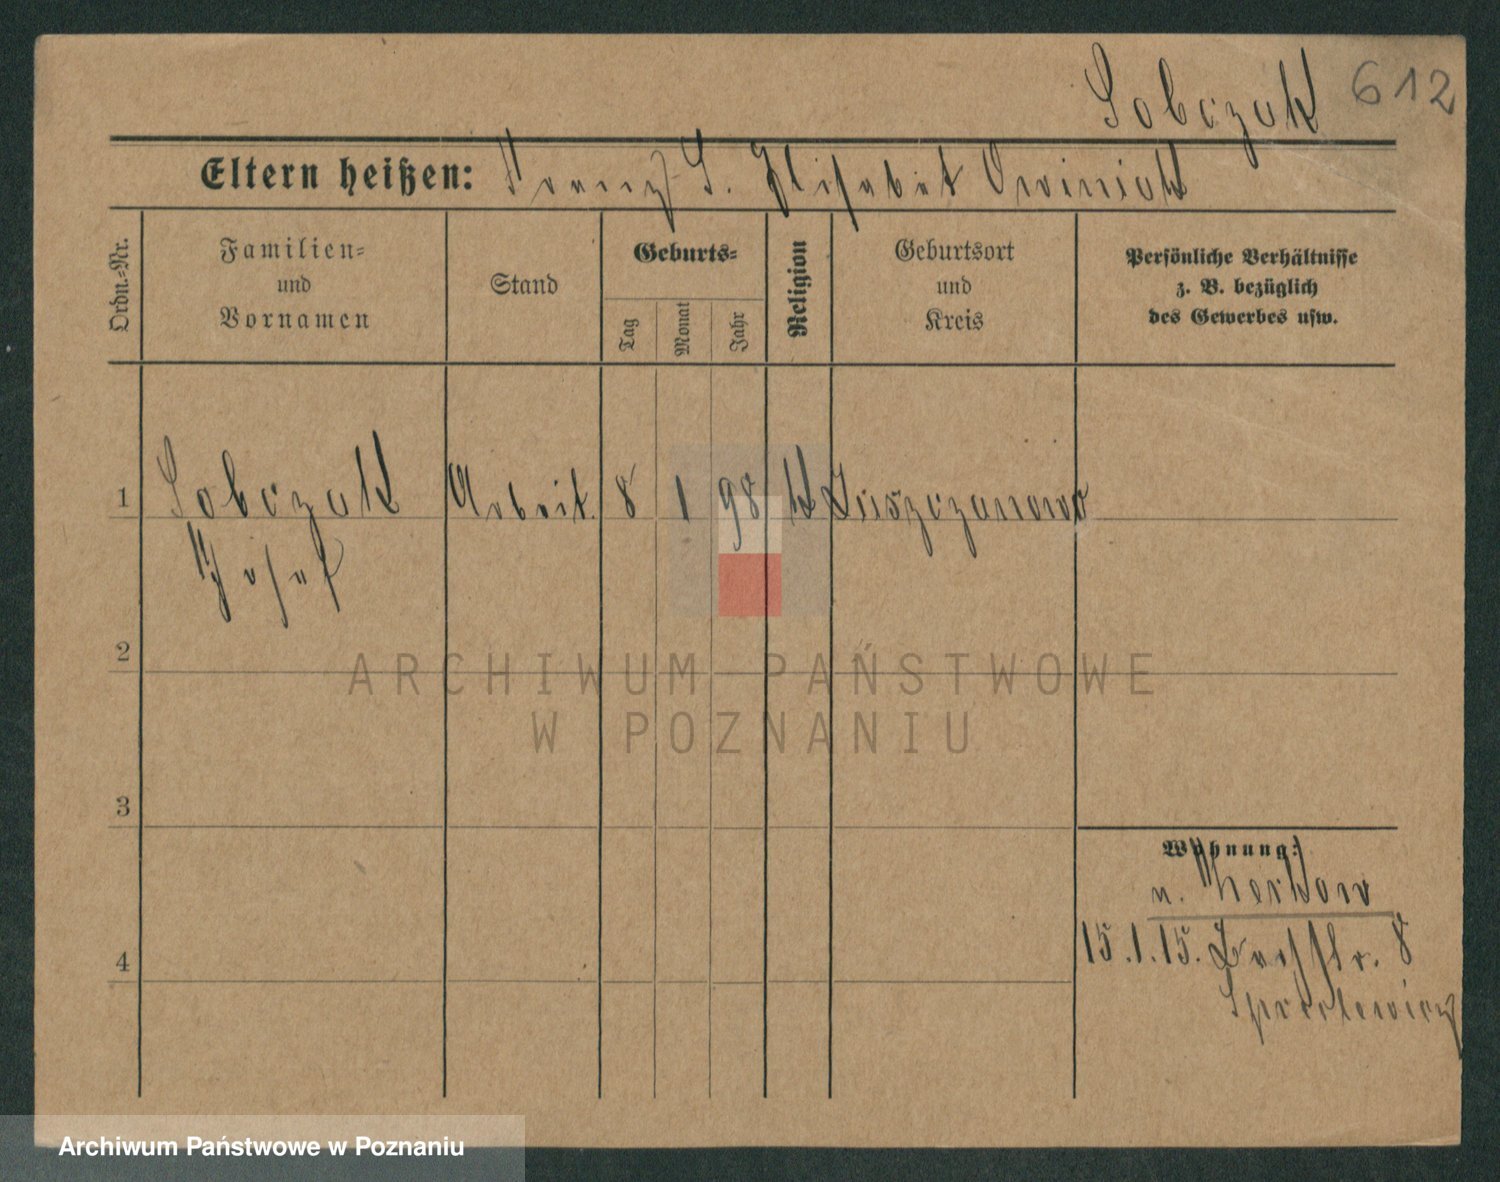 Sobczak 612
Eltern heißen: Franz S. Elisabet
Ordn.-Nr.
Familien-
und
Vornamen
Stand
Geburts-
Tag
Monat
Jahr
Religion
Geburtsort
und
Kreis
Persönliche Verhältnisse
z. B. bezüglich
des Gewerbes usw.
1 Sobczak Arbeit. 8 1 98 k
Josef
2
ARCHIWUM PAŃSTWOWE
W POZNANIU
3
Wohnung:
n. Zerkow
4
15.1.15. 8
Archiwum Państwowe w Poznaniu